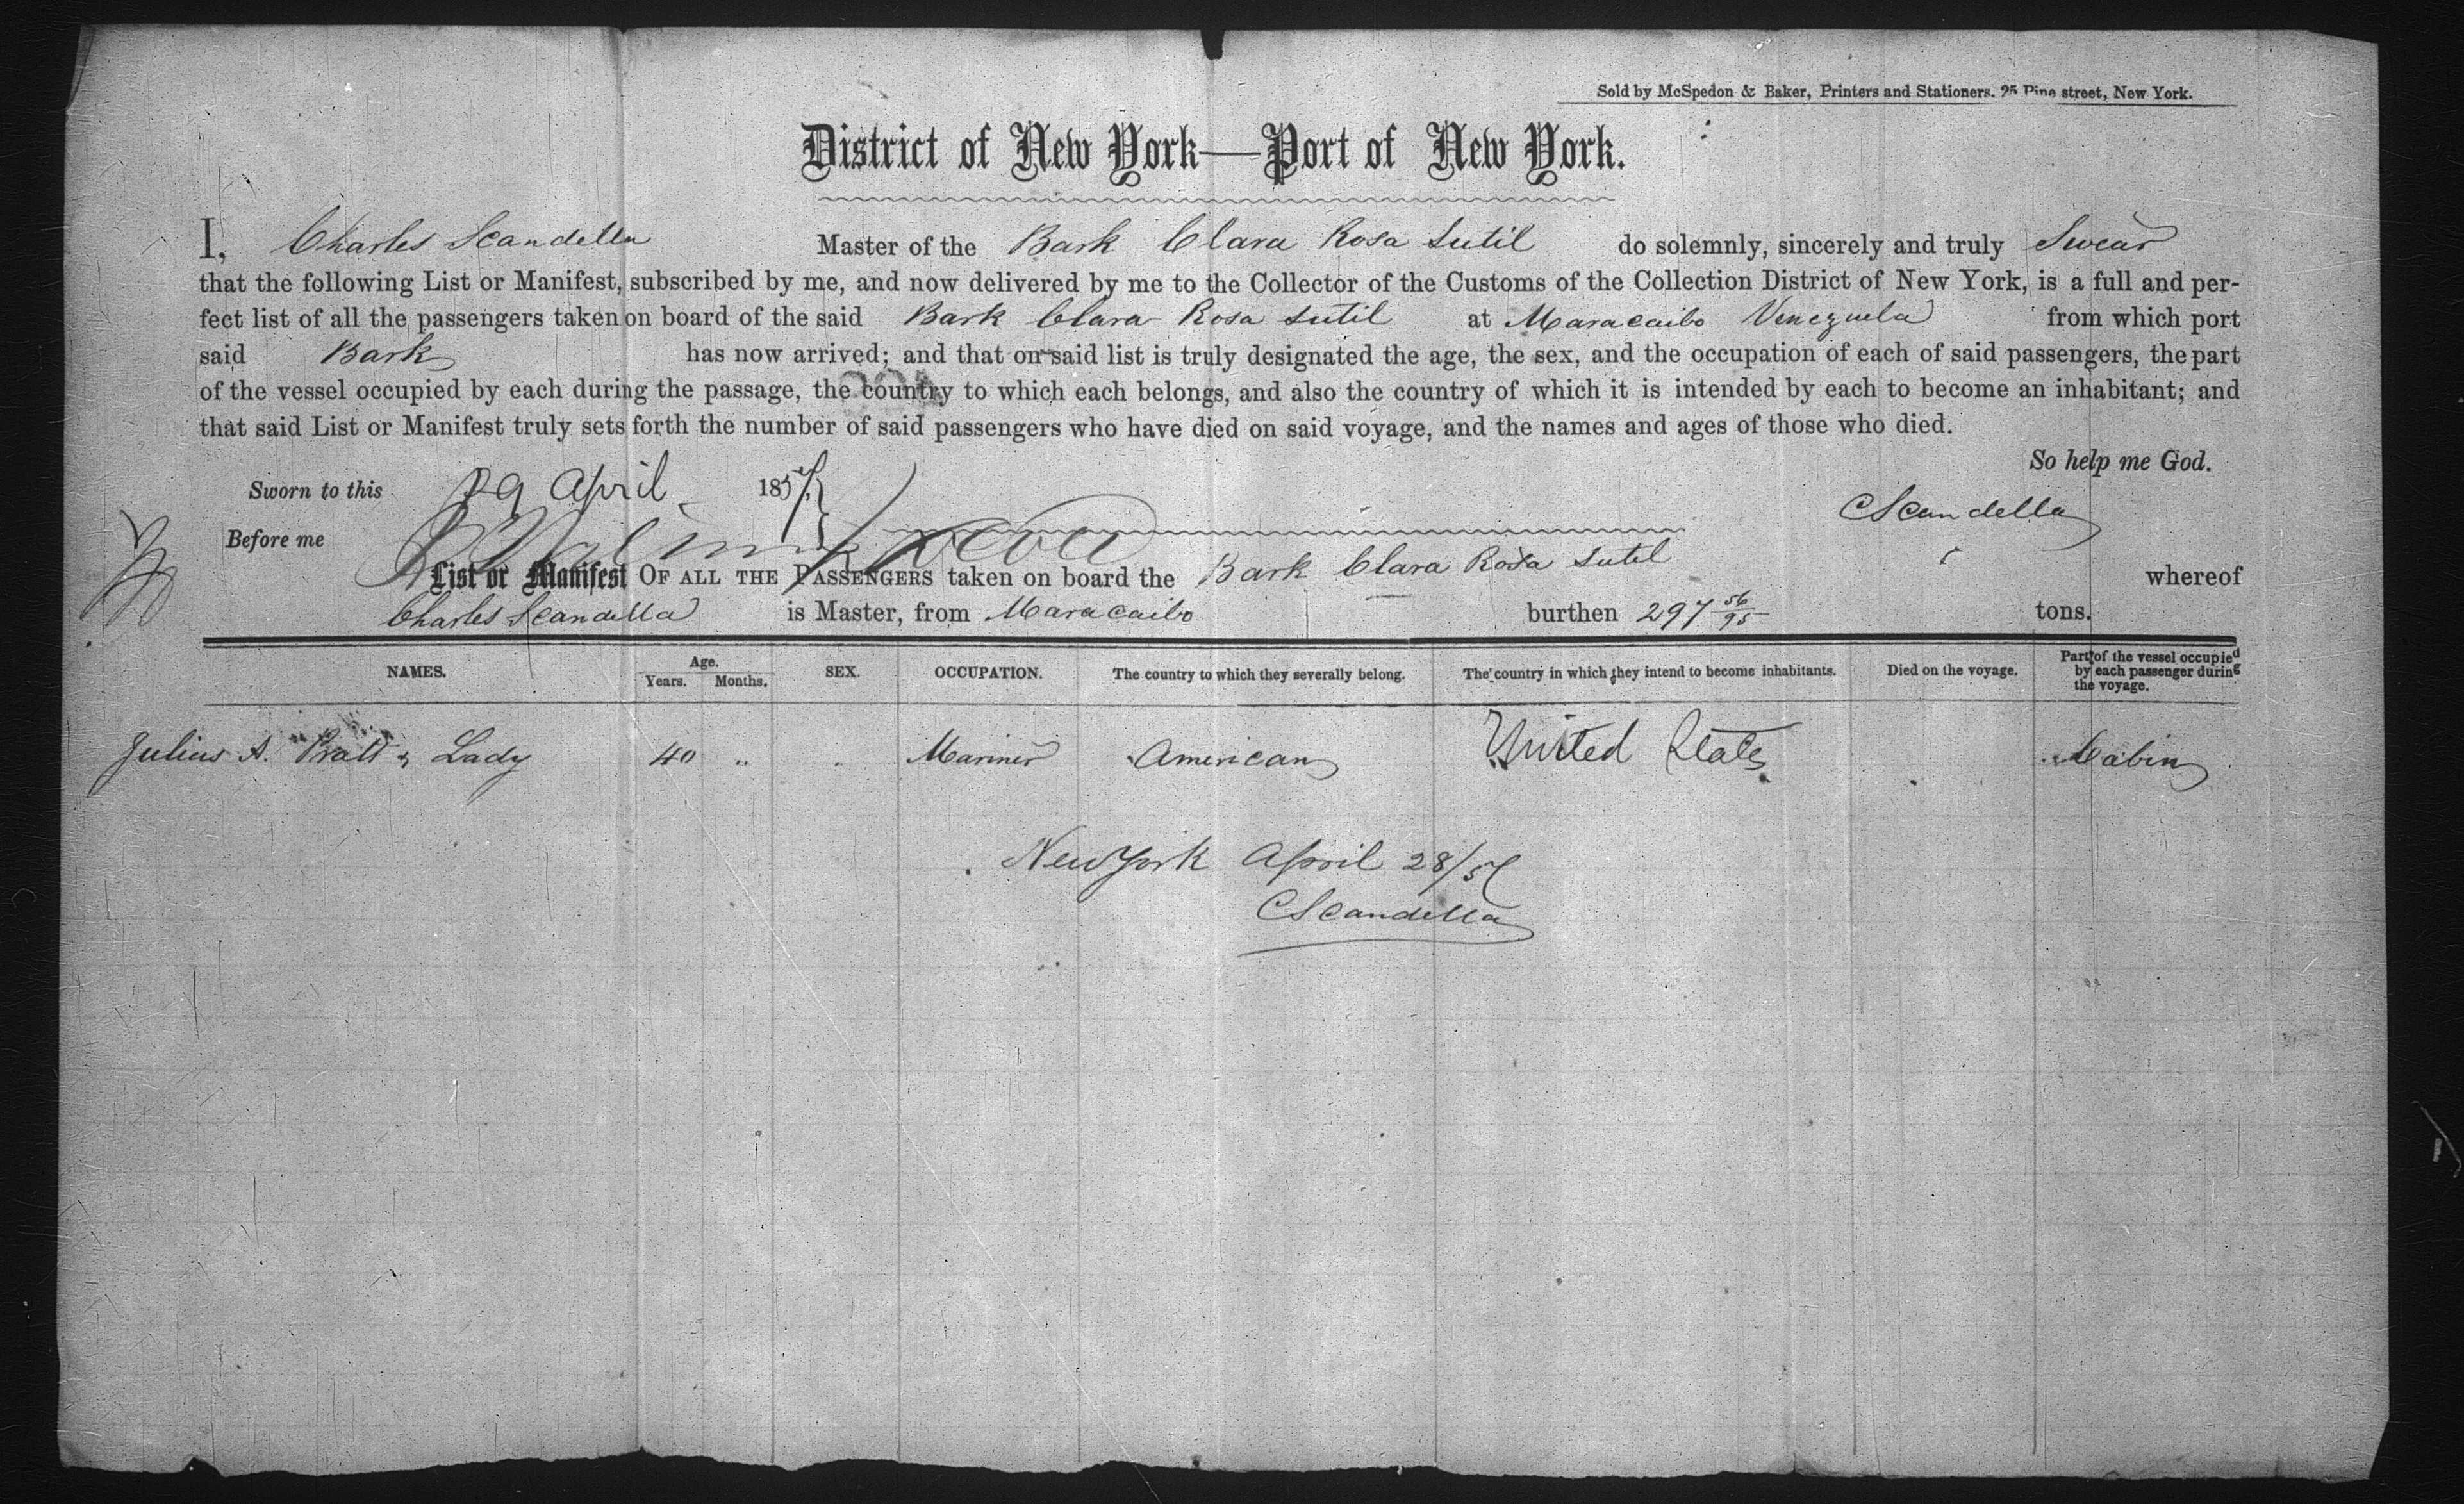 Sold by McSpedon & Baker, Printers and Stationers. 25 Pine street, New York.
District of New York—Port of New York.
I, Charles Scandella Master of the Bark Clara Rosa Sutil do solemnly, sincerely and truly Swear
that the following List or Manifest, subscribed by me, and now delivered by me to the Collector of the Customs of the Collection District of New York, is a full and per-
fect list of all the passengers taken on board of the said Bark Clara Rosa Sutil at Maracaibo Venezuela from which port
said Bark has now arrived; and that on said list is truly designated the age, the sex, and the occupation of each of said passengers, the part
of the vessel occupied by each during the passage, the country to which each belongs, and also the country of which it is intended by each to become an inhabitant; and
that said List or Manifest truly sets forth the number of said passengers who have died on said voyage, and the names and ages of those who died.
So help me God.
Sworn to this 29 April 1857
CScandella
Before me
List or Manifest OF ALL THE PASSENGERS taken on board the Bark Clara Rosa Sutil whereof
Charles Scandella is Master, from Maracaibo burthen 297 56/95 tons.
NAMES. Age. Years. Months. SEX. OCCUPATION. The country to which they severally belong. The country in which they intend to become inhabitants. Died on the voyage. Part of the vessel occupied by each passenger during the voyage.
Julius A. Pratt & Lady 40 " " Mariner American United States Cabin
New York April 28/57
CScandella